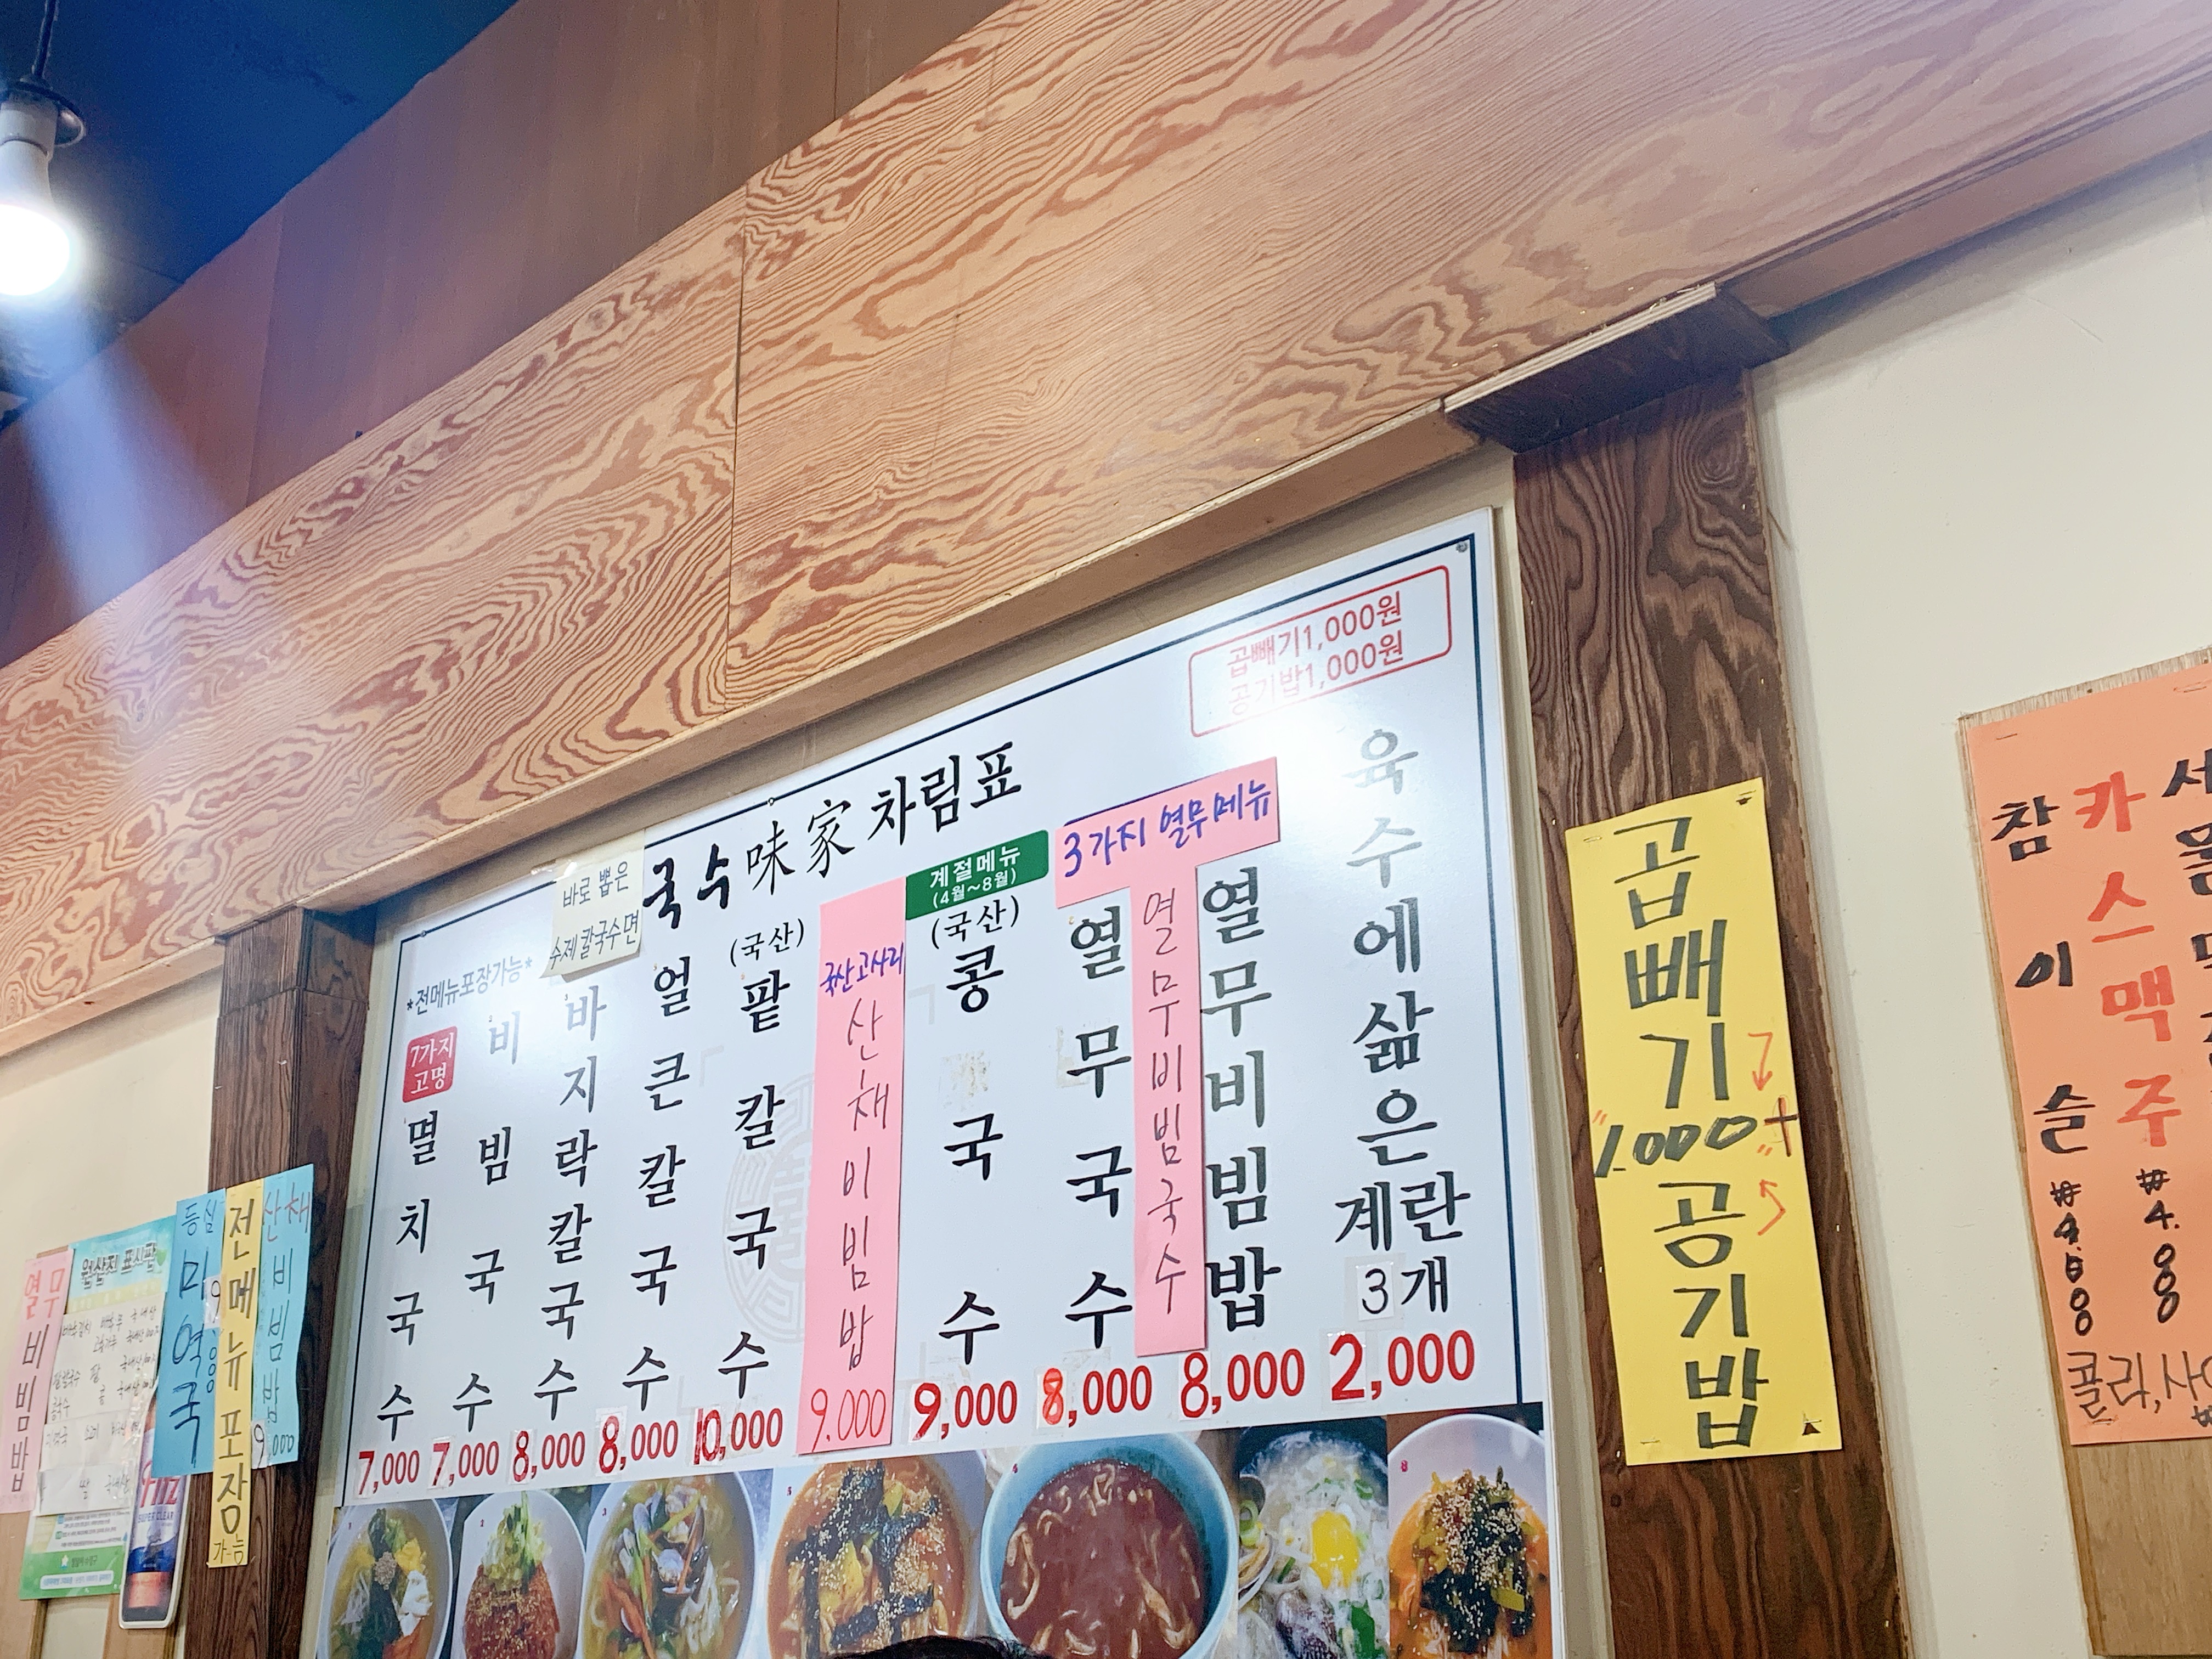 곱빼기1,000원
공기밥1,000원
국수味家 차림표
*전메뉴포장가능*
바로 뽑은
수제칼국수면
7가지
고명
멸치국수
7,000
비빔국수
7,000
바지락칼국수
8,000
얼큰칼국수
8,000
(국산)
팥칼국수
10,000
국산고사리
산채비빔밥
9.000
계절메뉴
(4월~8월)
(국산)
콩국수
9,000
3가지 열무메뉴
열무국수
8,000
열무비빔국수
열무비빔밥
8,000
육수에삶은
계란
3개
2,000
곱빼기
1.000
공기밥
참이슬
카스맥주
콜라,사
열무
비빔밥
원산지 표시판
등심
미역국
전메뉴포장
가능
산채
비빔밥
9.000
SUPER CLEAR